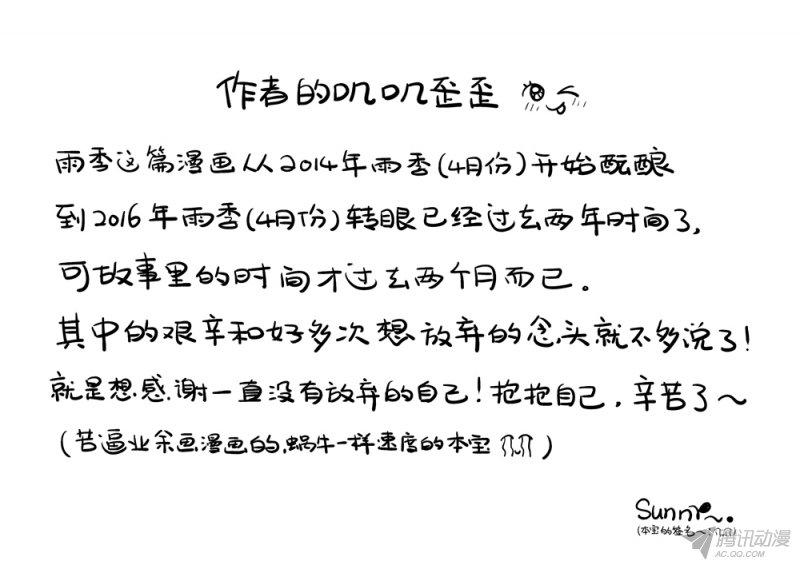 作者的叽叽歪歪
雨季这篇漫画从2014年雨季(4月份)开始酝酿
到2016年雨季(4月份)转眼已经过去两年时间了,
可故事里的时间才过去两个月而已。
其中的艰辛和好多次想放弃的念头就不多说了!
就是想感谢一直没有放弃的自己!抱抱自己,辛苦了~
(苦逼业余画漫画的,蜗牛一样速度的本宝
)
Sunny~.
(本宝的签名~
腾讯动漫
AC.QQ.COM